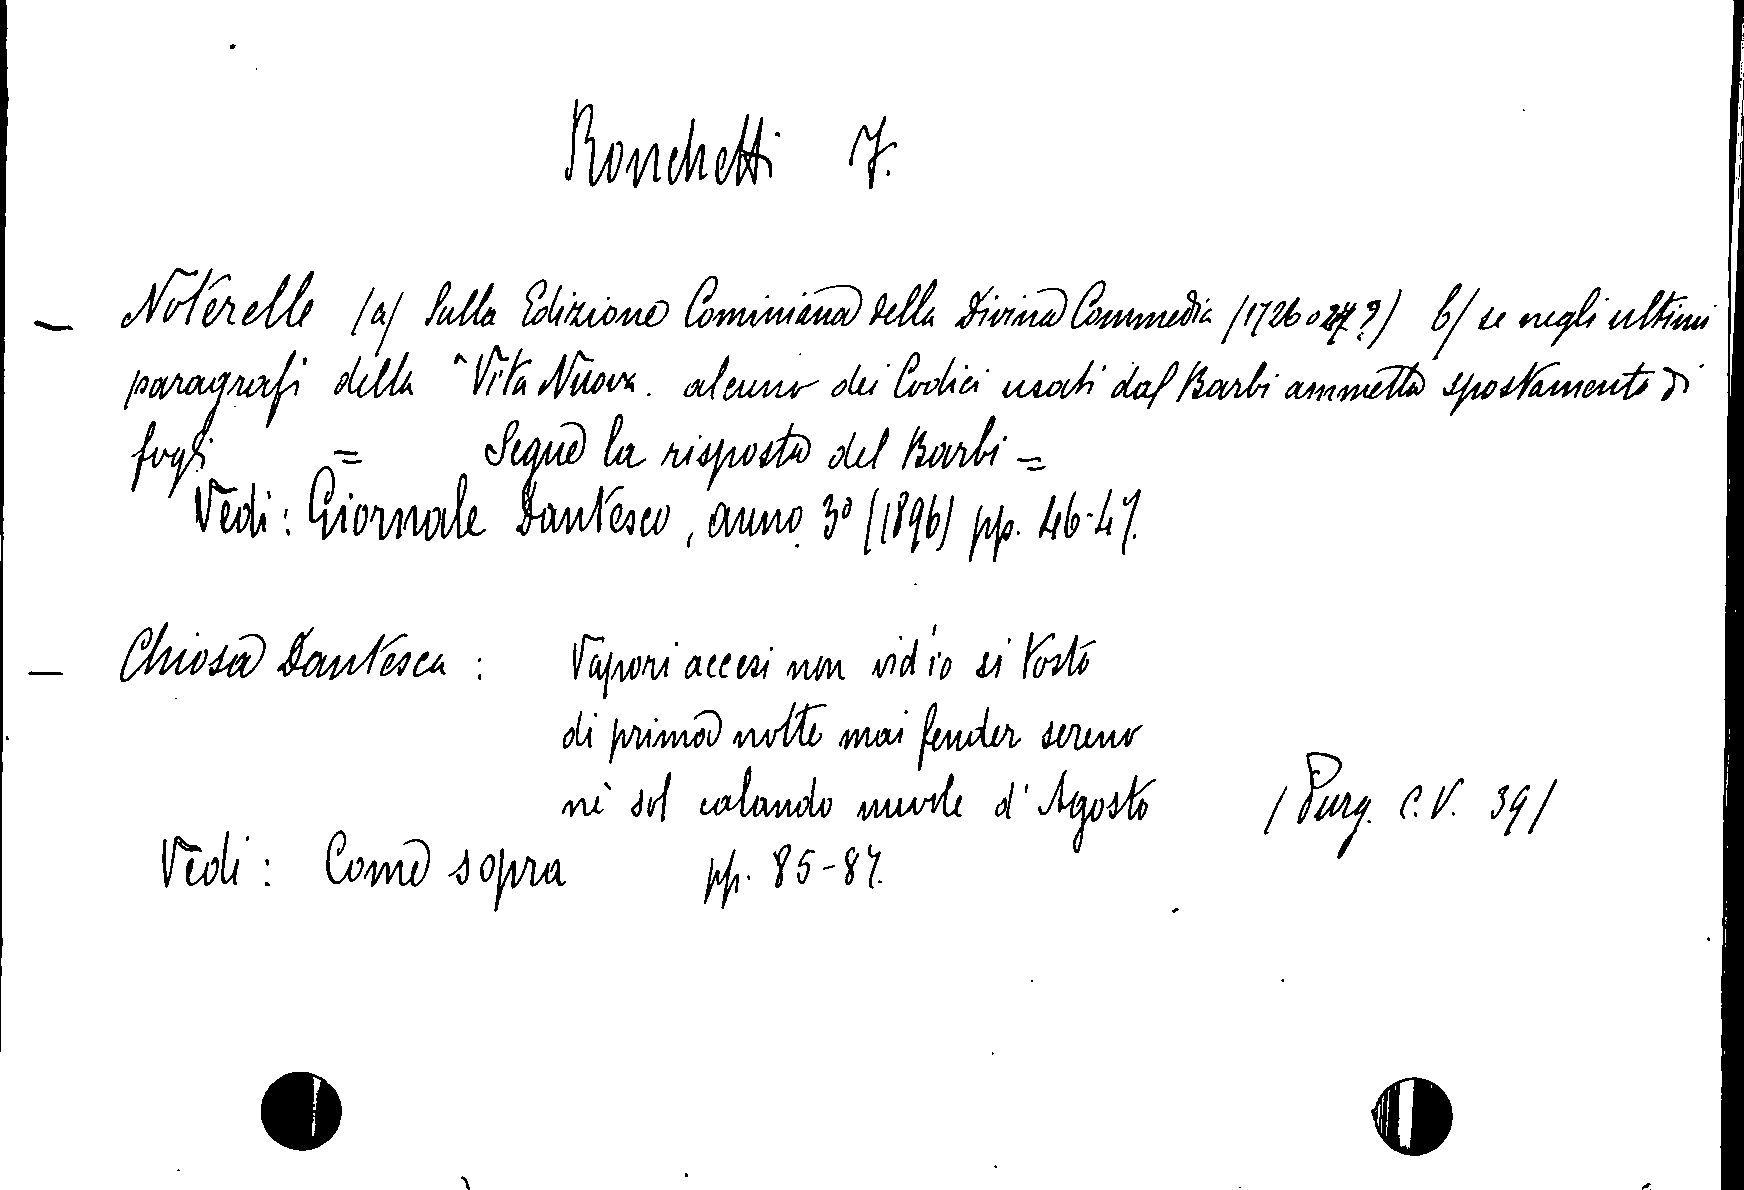 Ronchetti F.
— Noterelle (a) Sulla Edizione Cominiana della Divina Commedia (1726 o 27?) b) se negli ultimi
paragrafi della "Vita Nuova. alcuno dei Codici usati dal Barbi ammetta spostamento di
fogli = Segue la risposta del Barbi =
Vedi: Giornale Dantesco, anno 3º (1896) pp. 46-47.
— Chiosa Dantesca: Vapori accesi non vid'io si tosto
di prima notte mai fender sereno
nè sol calando nuvole d'Agosto (Purg. C.V. 39)
Vedi: Come sopra pp. 85-87.